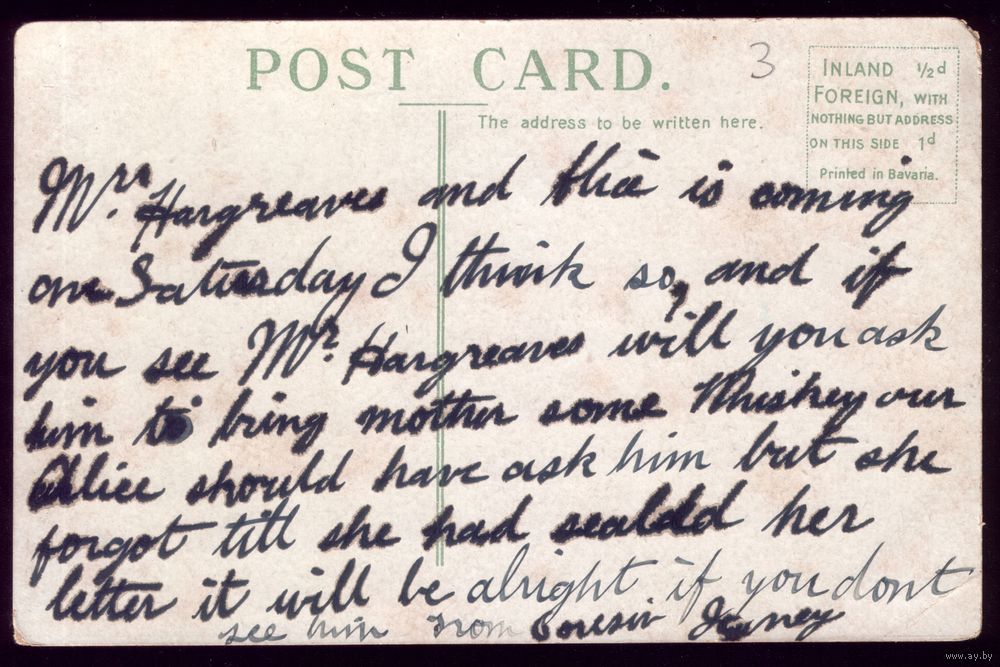 POST CARD.
3
The address to be written here.
INLAND ½d
FOREIGN, WITH
NOTHING BUT ADDRESS
ON THIS SIDE 1d
Printed in Bavaria.
Mrs. Hargreaves and Alice is coming
on Saturday I think so, and if
you see Mr. Hargreaves will you ask
him to bring mother some Whiskey our
Alice should have ask him but she
forgot till she had sealdd her
letter it will be alright if you dont
see him from Cousin
www.ay.by